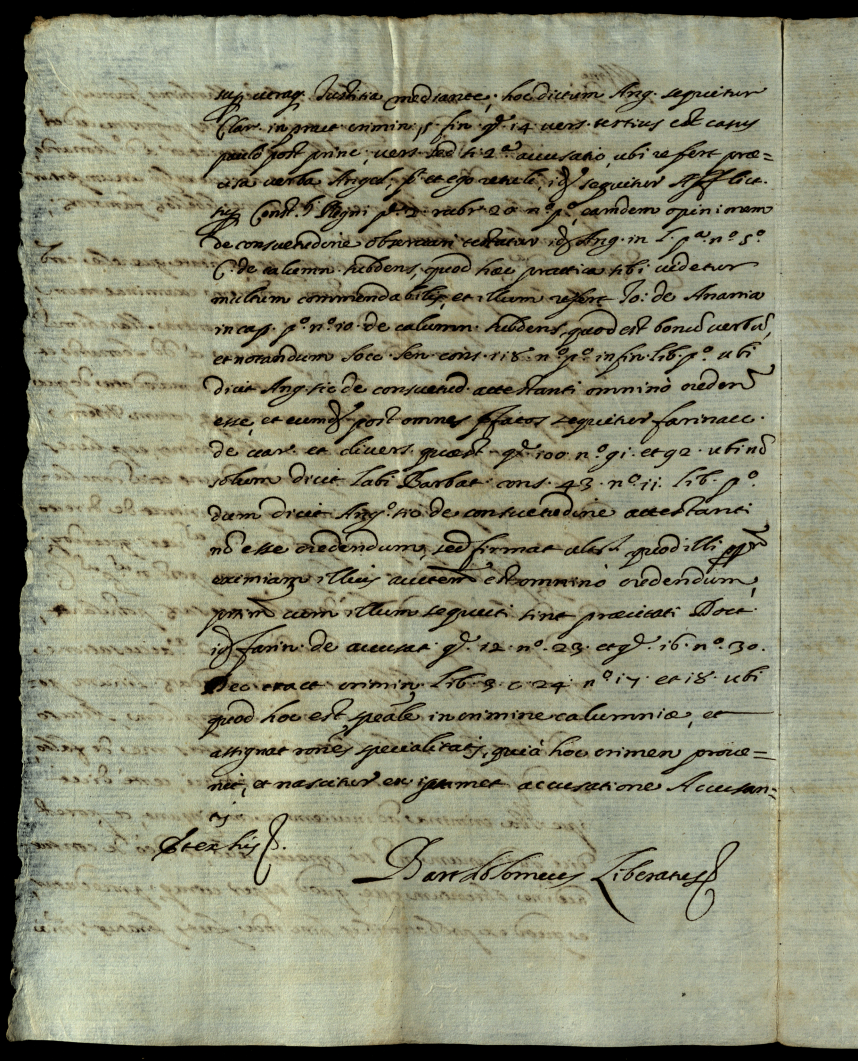 sup. utraq. Justitia mediante, hoc dictum Ang. sequitur
Clar. in pract. crimin. §. fin. q. 14 vers. tertius est casus
paulo post princ., vers. sed si 2.º accusatio, ubi refert præ=
cisa verba Angel., et ego retuli, id sequitur Afflict.
Const. Regni rubr. 20 nº pº, eamdem opinionem
de consuetudine observari testatur Ang. in l. pª nº 5º
C. de calumn. subdens, quod hæc practica sibi videtur
multum commendabilis, et illum refert Jo: de Anania
in cap. pº nº 10 de calumn. subdens, quod est bonū verbū,
et notandum Socc. Sen. cons. 118 nº pº in fin. Lib. pº ubi
dicit Ang. sic de consuetud. attestanti omnino
esse, et post omnes sequitur farinacc.
de var. et divers. quæst. q. 100 nº 91. et 92. ubi nō
solum dicit labi Barbat. cons. 43. nº 11. Lib. pº
dum dicit Angº sic de consuetudine attestanti
nō esse credendum, sed firmat quod illi
eximiam illius est omnino credendum,
cum illum sequuti sint præcitati Doct.
farin. de accusat. q. 12. nº 23. et q. 16. nº 30.
tract. crimin. Lib. 3. c. 24. nº 17. et 18. ubi
quod hoc est speāle in crimine calumniæ, et
assignat ronēs specialitatis, quia hoc crimen prove=
nit, et nascitur ex ipsamet accusatione Accusan=
tis
Et ex his
Bartholomeus Liberatus